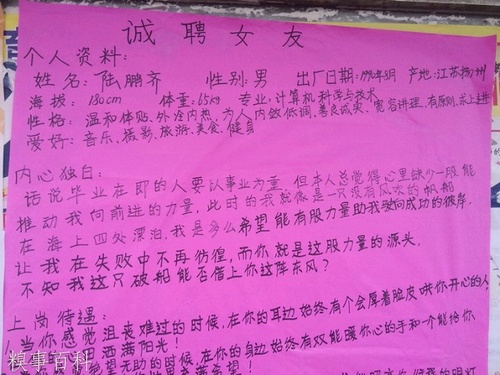 诚聘女友
个人资料:
姓名:陆鹏齐 性别:男 出厂日期:1990年8月 产地:江苏扬州
海拔:180cm 体重:65kg 专业:计算机科学与技术
性格:温和体贴、外冷内热、为人内敛低调、善良诚实、宽容讲理、有原则、求上进
爱好:音乐、摄影、旅游、美食、健身
内心独白:
话说毕业在即的人要以事业为重,但本人总觉得心里缺少一股能
推动我向前进的力量,此时的我就像是一只没有风吹的帆船
在海上四处漂泊,我是多么希望能有股力量助我驶向成功的彼岸,
让我在失败中不再彷徨,而你就是这股力量的源头,
不知我这只破船能否借上你这阵东风?
上岗待遇:
1.当你感觉沮丧难过的时候,在你的耳边始终有个会厚着脸皮哄你开心的人
阳洒满阳光!
望无助的时候,在你的身边始终有双能暖你心的手和一个能给你
糗事百科